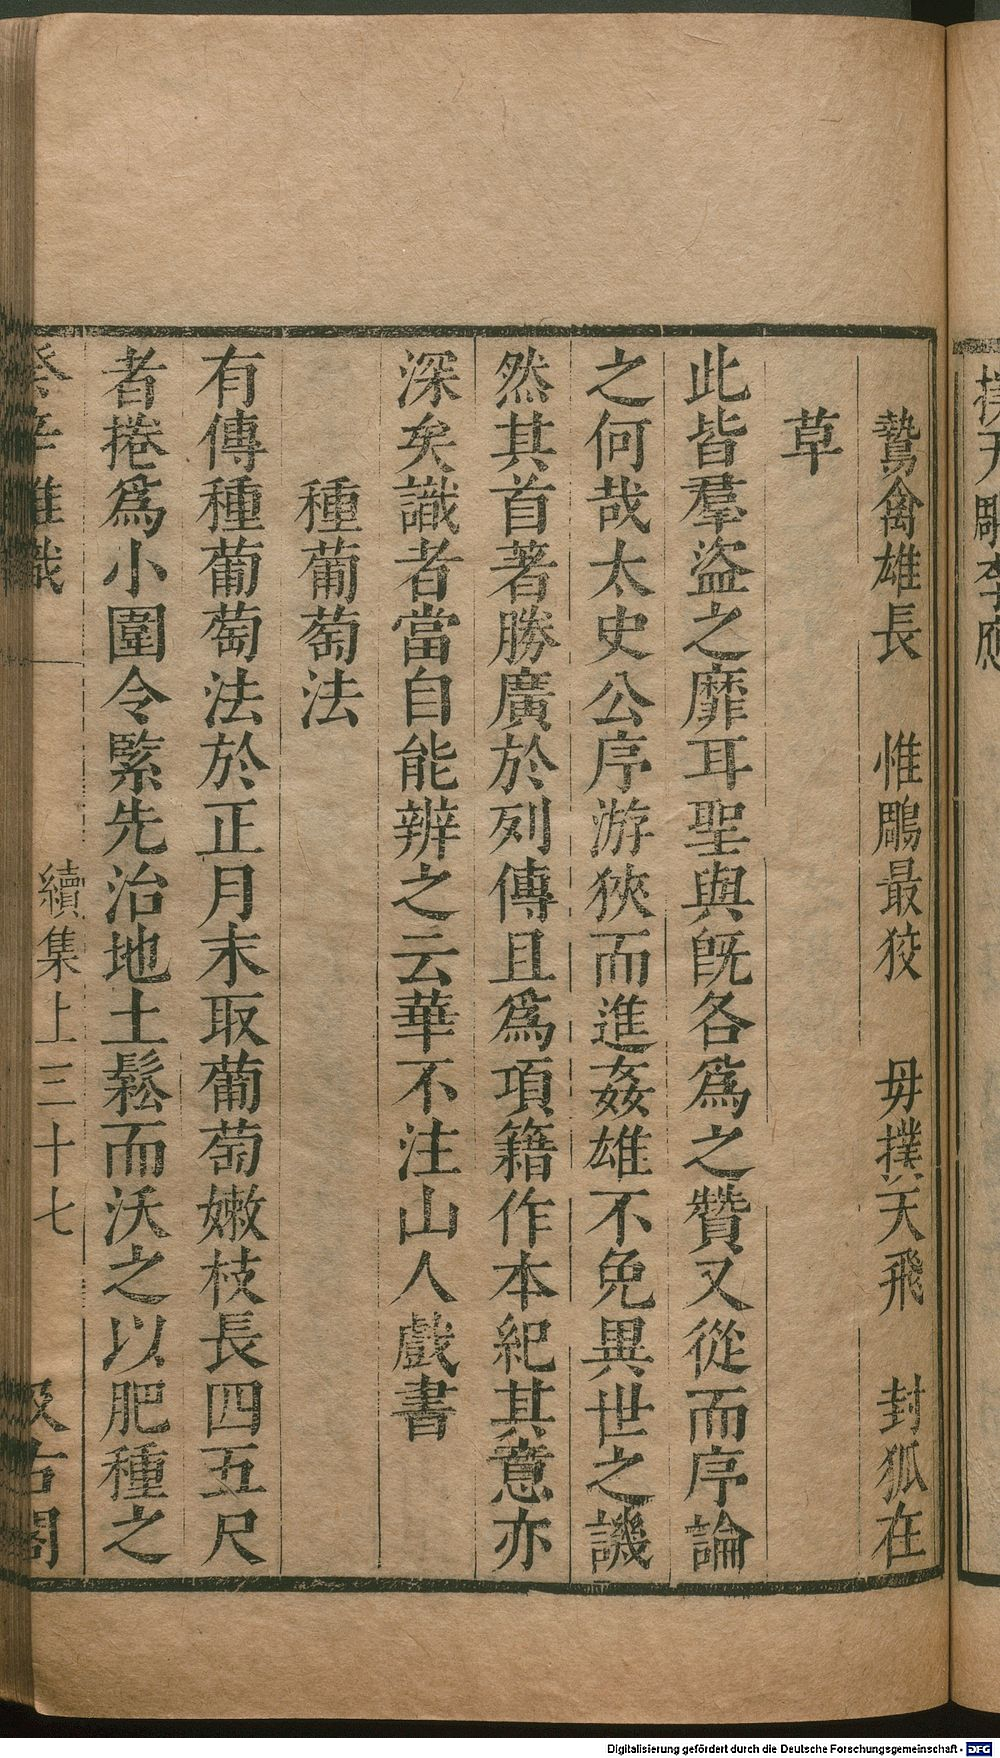 撲天鵰李應
鷙禽雄長　惟鵰最狡　毋撲天飛　封狐在
草
此皆羣盜之靡耳聖與既各爲之贊又從而序論
之何哉太史公序游俠而進姦雄不免異世之譏
然其首著勝廣於列傳且爲項籍作本紀其意亦
深矣識者當自能辨之云華不注山人戲書
種葡萄法
有傳種葡萄法於正月末取葡萄嫩枝長四五尺
者捲爲小圍令緊先治地土鬆而沃之以肥種之
癸辛雜識　續集上　三十七　汲古閣
Digitalisierung gefördert durch die Deutsche Forschungsgemeinschaft - DFG